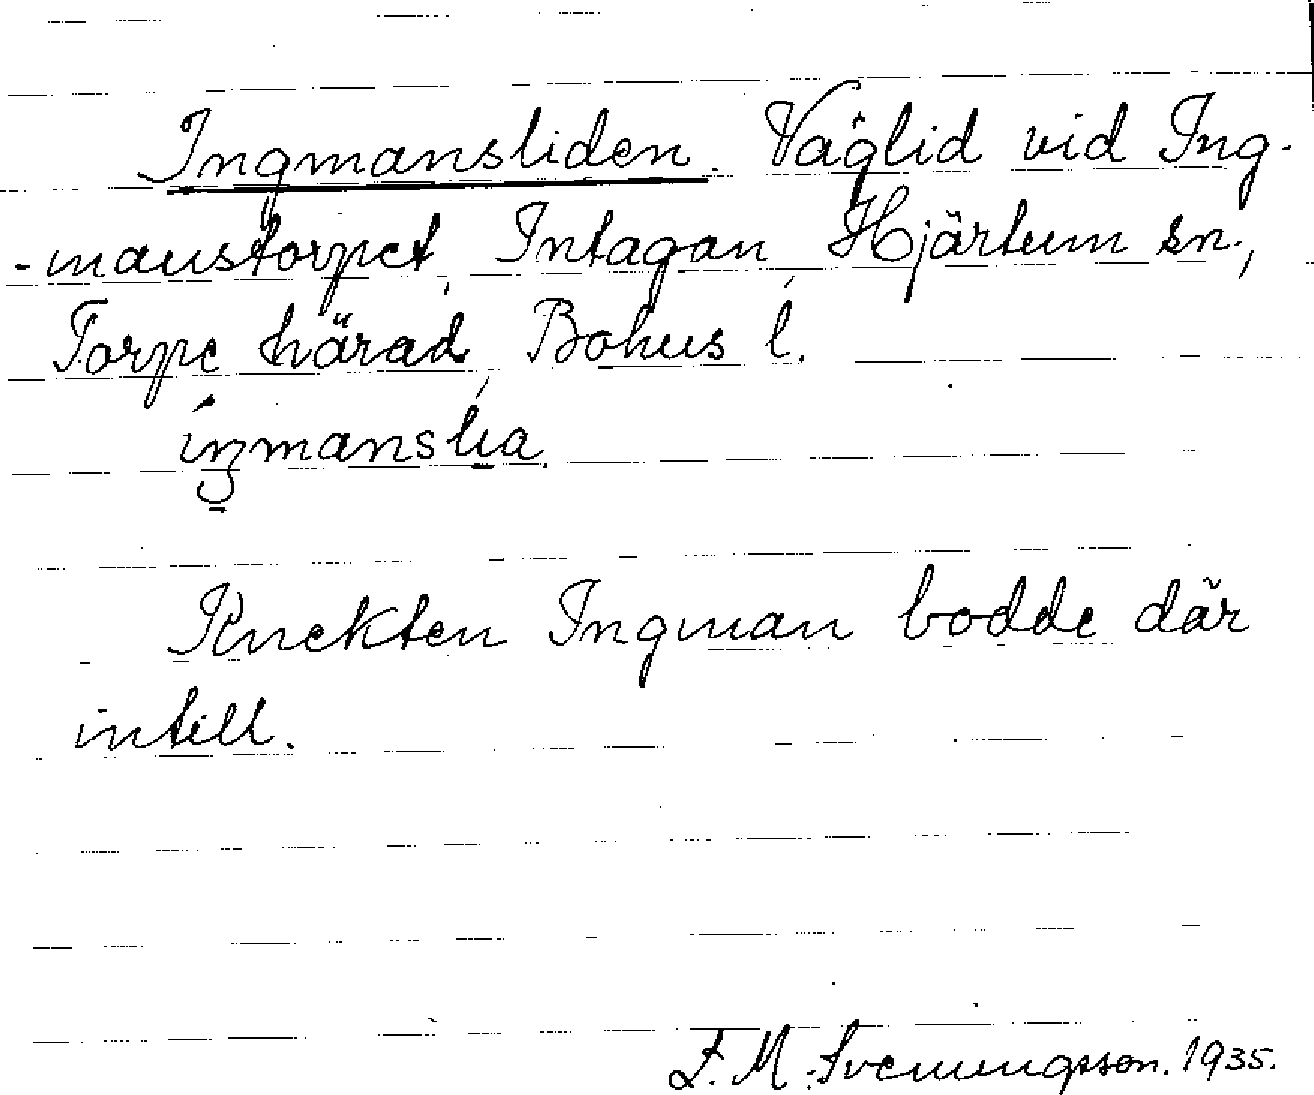 Ingmansliden. Väglid vid Ing-
-manstorpet, Intagan, Hjärtum sn.,
Torpe härad, Bohus l.
Knekten Ingman bodde där
intill.
E. M. Svenungsson. 1935.